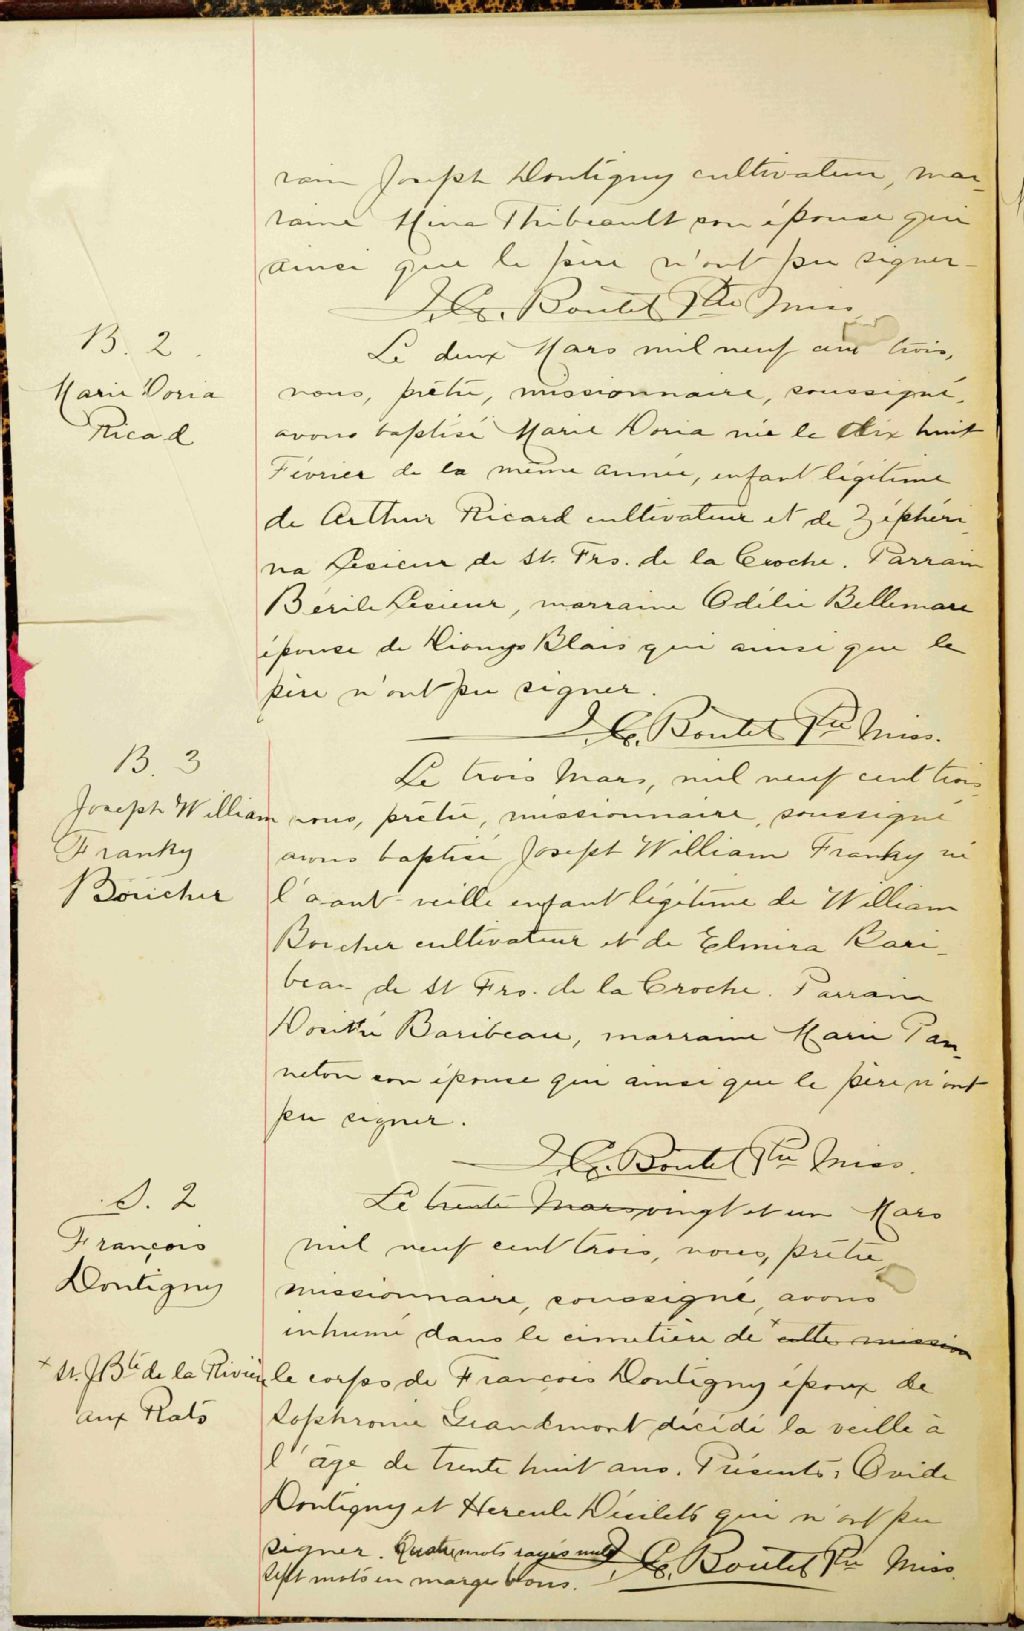 rain Joseph Dontigny cultivateur, mar-
raine Mina Thibeault son épouse qui
ainsi que le père n'ont pu signer-
J. C. Boutet Ptre Miss.
B. 2.
Marie Doria
Ricard
Le deux Mars mil neuf cent trois,
nous, prêtre, missionnaire, soussigné,
avons baptisé Marie Doria née le dix huit
Février de la même année, enfant légitime
de Arthur Ricard cultivateur et de Zéphéri-
na Lesieur de St. Frs. de la Croche. Parrain
Bérile Lesieur, marraine Odélie Bellemare
épouse de Dionys Blais qui ainsi que le
père n'ont pu signer.
J. C. Boutet Ptre Miss.
B. 3
Joseph William
Franky
Boucher
Le trois Mars, mil neuf cent trois,
nous, prêtre, missionnaire, soussigné
avons baptisé Joseph William Franky né
l'avant-veille enfant légitime de William
Boucher cultivateur et de Elmira Bari-
beau de St Frs. de la Croche. Parrain
Dosithé Baribeau, marraine Marie Pan-
neton son épouse qui ainsi que le père n'ont
pu signer.
J. C. Boutet Ptre Miss.
S. 2
François
Dontigny
Le trente Mars vingt et un Mars
mil neuf cent trois, nous, prêtre,
missionnaire, soussigné, avons
inhumé dans le cimetière de x cette mission
x St. J Bte de la Rivière
aux Rats
le corps de François Dontigny époux de
Sophronie Grandmont décédé la veille à
l'âge de trente huit ans. Présents: Ovide
Dontigny et Hercule Désilets qui n'ont pu
signer. Quatre mots rayés nuls
Sept mots en marge bons.
J. C. Boutet Ptre Miss.